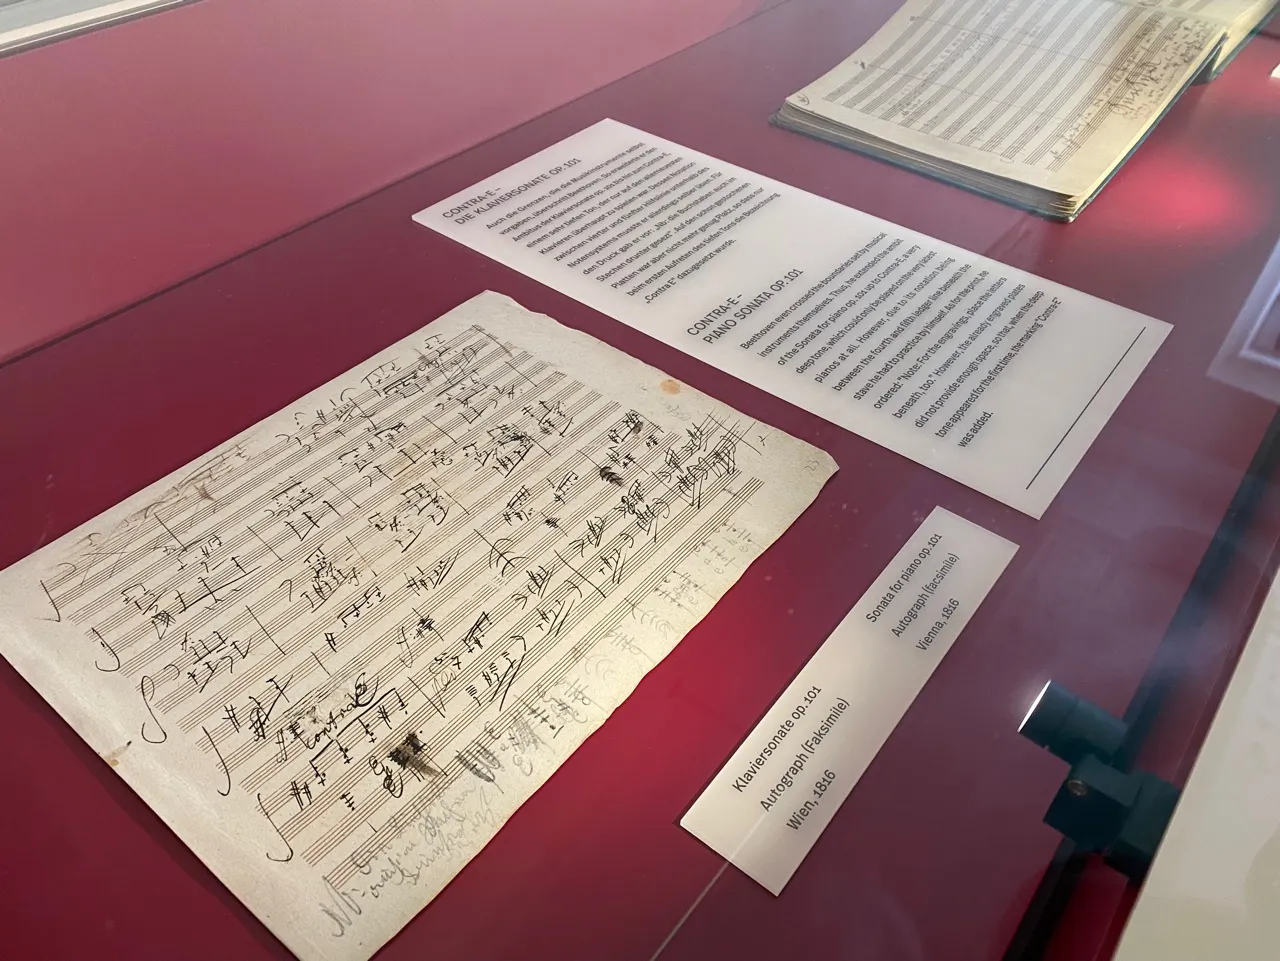 CONTRA-E –
DIE KLAVIERSONATE OP. 101
Auch die Grenzen, die die Musikinstrumente selbst
vorgaben, überschritt Beethoven. So erweiterte er den
Ambitus der Klaviersonate op. 101 bis hin zum Contra-E,
einem sehr tiefen Ton, der nur auf den allerneuesten
Klavieren überhaupt zu spielen war. Dessen Notation
zwischen vierter und fünfter Hilfslinie unterhalb des
Notensystems musste er allerdings selber üben. Für
den Druck gab er vor: „Nb: die Buchstaben auch im
Stechen drunter gesezt“. Auf den schon gestochenen
Platten war aber nicht mehr genug Platz, so dass nur
beim ersten Auftreten des tiefen Tons die Bezeichnung
„Contra E“ dazugesetzt wurde.
CONTRA-E –
PIANO SONATA OP. 101
Beethoven even crossed the boundaries set by musical
instruments themselves. Thus, he extended the ambit
of the Sonata for piano op. 101 up to Contra-E, a very
deep tone, which could only be played on the very latest
pianos at all. However, due to its notation being
between the fourth and fifth ledger line beneath the
stave he had to practice by himself. As for the print, he
ordered: "Note: For the engravings, place the letters
beneath, too." However, the already engraved plates
did not provide enough space, so that, when the deep
tone appeared for the first time, the marking "Contra-E"
was added.
Klaviersonate op. 101
Autograph (Faksimile)
Wien, 1816
Sonata for piano op. 101
Autograph (facsimile)
Vienna, 1816
contra E